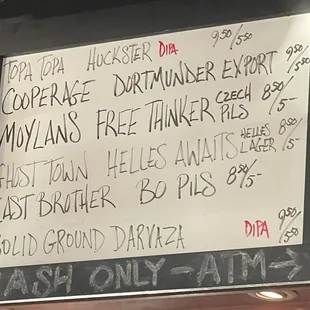 TOPA TOPA HUCKSTER DIPA 950/550
COOPERAGE DORTMUNDER EXPORT 950/550
MOYLANS FREE THINKER CZECH PILS 850/5-
HOST TOWN HELLES AWAITS HELLES LAGER 850/5-
AST BROTHER BO PILS 850/5-
OLID GROUND DARVAZA DIPA 950/550
ASH ONLY - ATM →